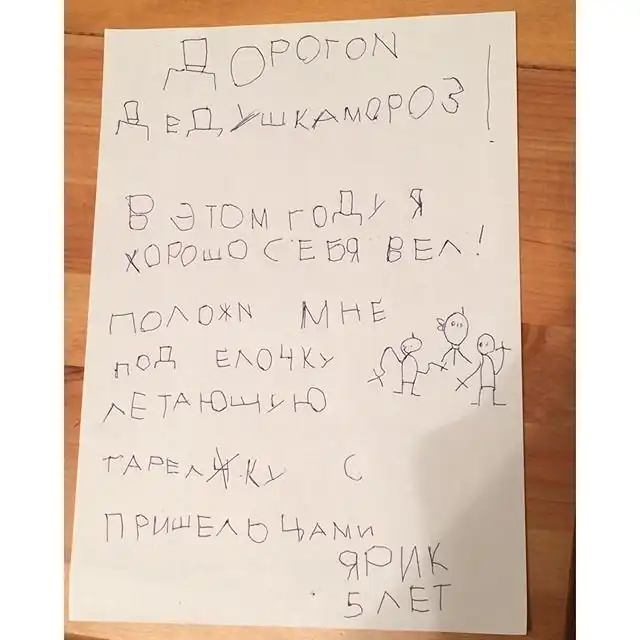 ДОРОГОИ
ДЕДУШКАМОРОЗ!
В ЭТОМ ГОДУ Я
ХОРОШО СЕБЯ ВЕЛ!
ПОЛОЖИ МНЕ
ПОД ЕЛОЧКУ
ЛЕТАЮЩУЮ
ТАРЕЛЖКУ С
ПРИШЕЛЬЦАМИ
ЯРИК
5 ЛЕТ